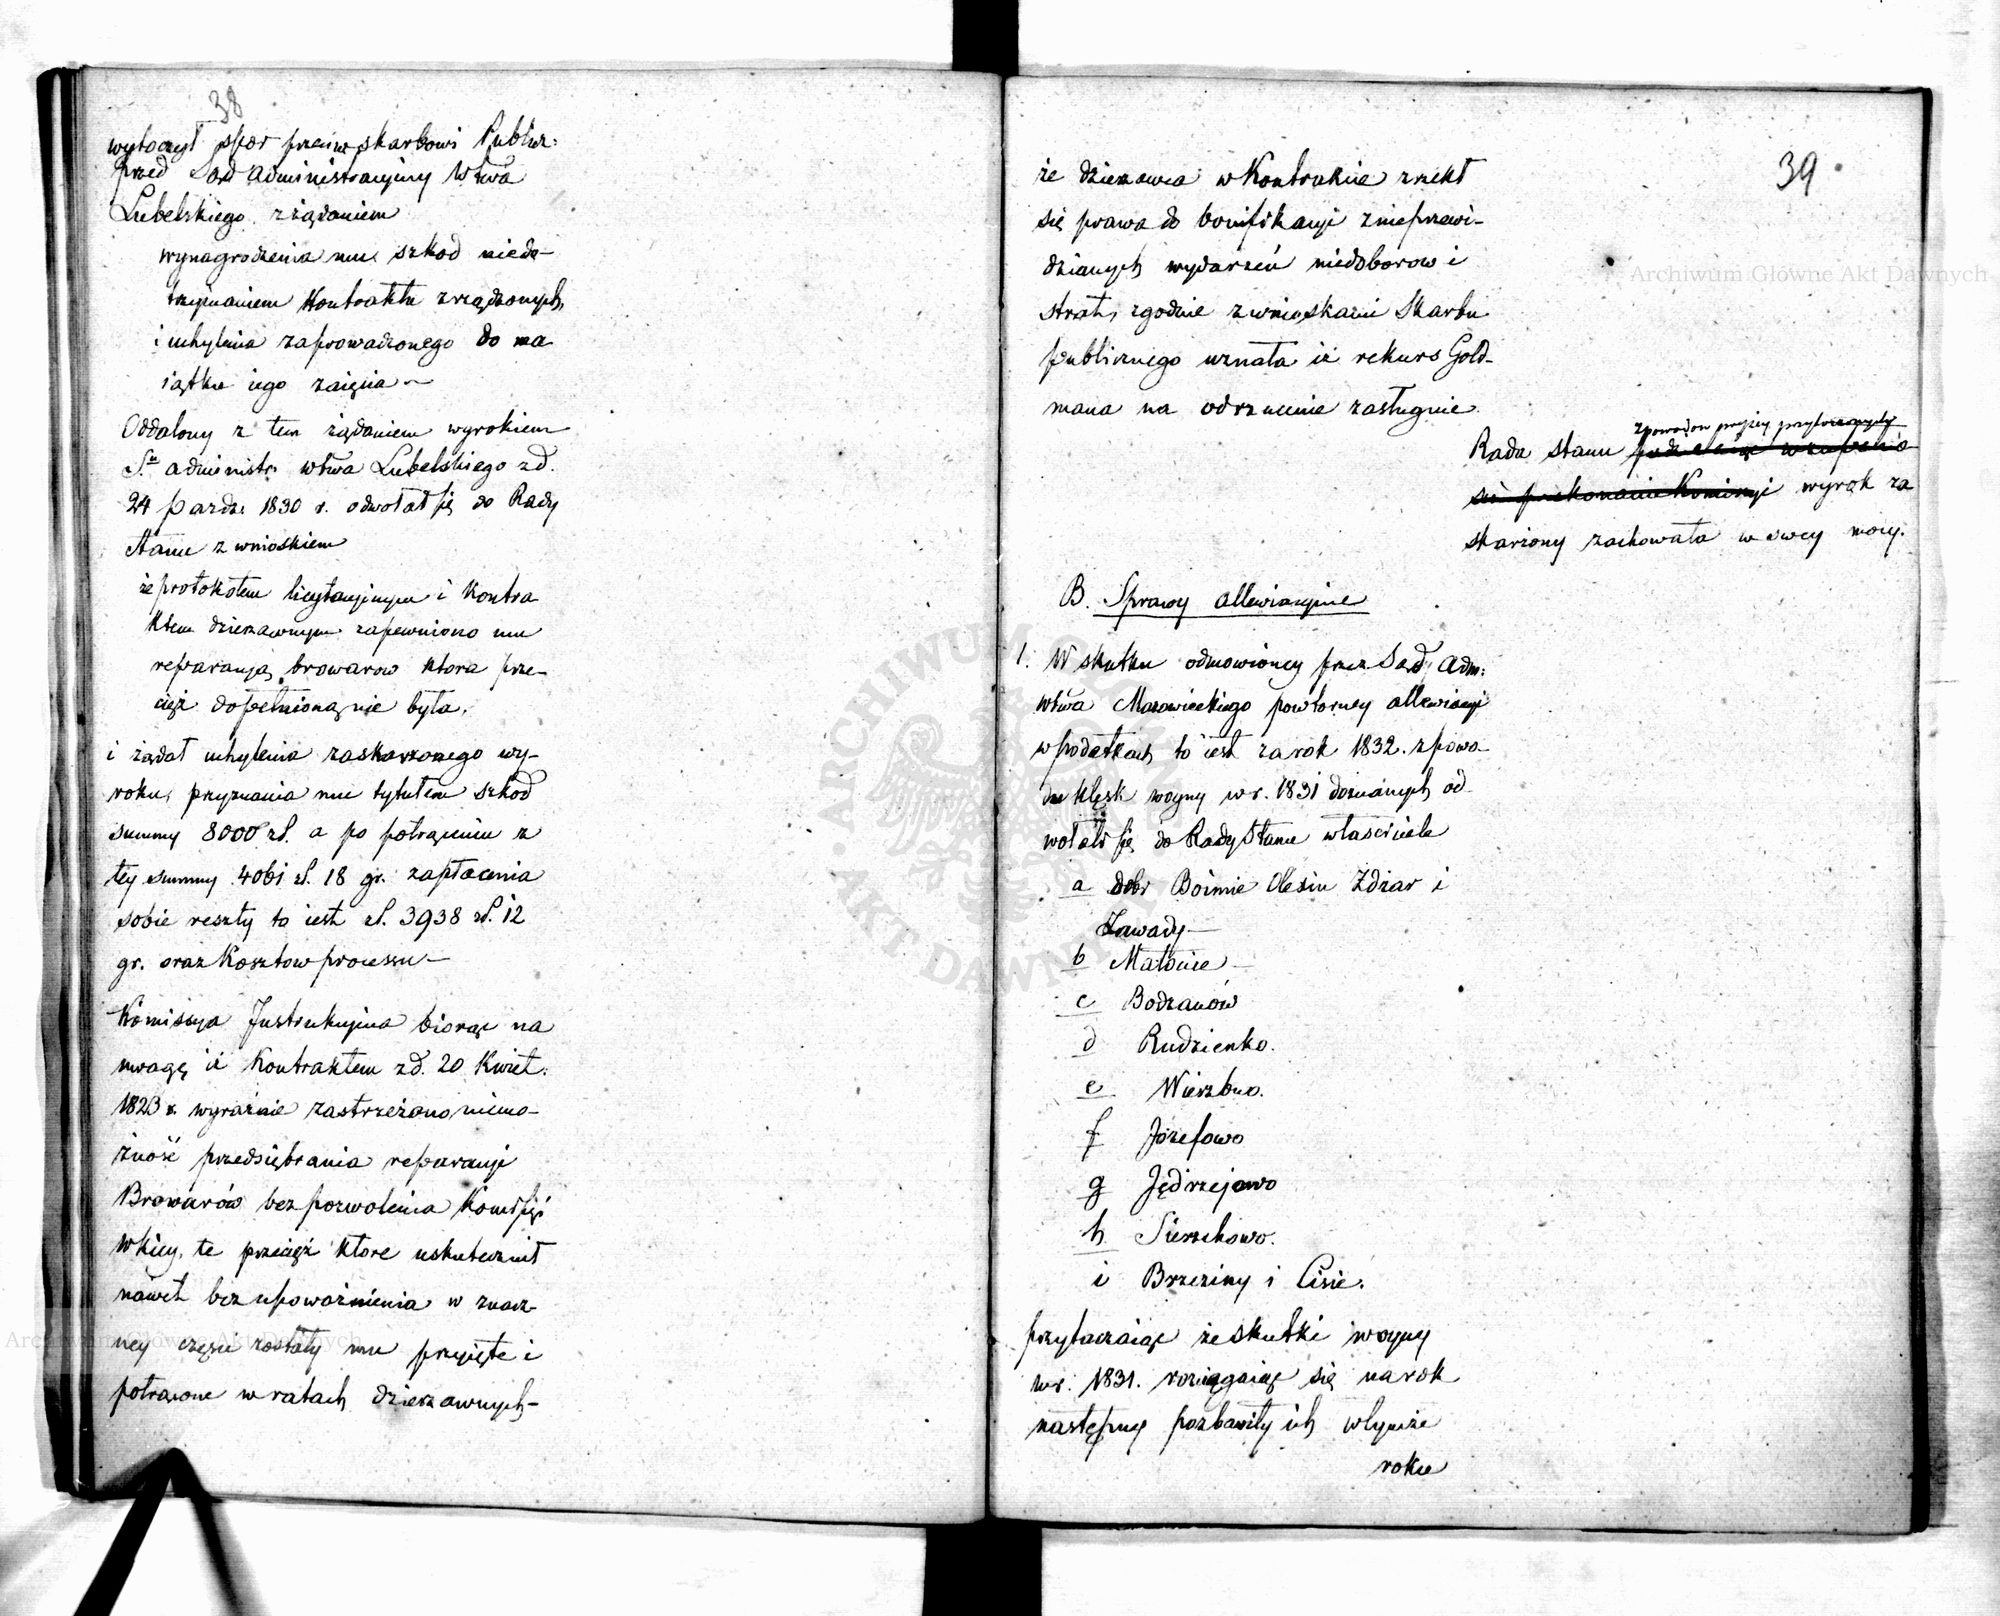 38
wytoczył spor przeciw skarbowi Publicz:
przed Sąd Administracyiny Wtwa
Lubelskiego z żądaniem
wynagrodzenia mu szkod niedo-
trzymaniem Kontraktu zrządzonych,
i uchylenia zaprowadzonego do ma
iątku iego zaięcia ~
Oddalony z tem żądaniem wyrokiem
S.u administr. wtwa Lubelskiego z d.
24 pazdz. 1830 r. odwołał się do Rady
Stanu z wnioskiem
że protokołem licytacyinym i kontra
ktem dzierzawnym zapewniono mu
reparacyą browarow ktora prze-
cięż dopełnioną nie była,
i żądał uchylenia zaskarzonego wy-
roku, przyznania mu tytułem szkod
summy 8000 zł. a po potrąceniu z
tey summy 4061 zł. 18 gr. zapłacenia
sobie reszty to iest zł. 3938 zł. 12
gr. oraz Kosztow processu —
Kommissya Instrukcyina biorąc na
uwagę iż Kontraktem z d. 20 Kwiet.
1823 r. wyraźnie zastrzeżono niemo-
żność przedsiębrania reparacyi
Browarów bez pozwolenia Kommissyi
Wkiey, te przecięż które uskutecznił
nawet bez upoważnienia w znacz-
ney części zostały mu przyięte i
potrącone w ratach dzierzawnych —
39
że dzierzawca w Kontrakcie zrzekł
się prawa do bonifikacyi z nieprzewi-
dzianych wydarzeń niedoborow i
strat, zgodnie z wnioskami Skarbu
publicznego uznała iż rekurs Gold-
mana na odrzucenie zasługuie.
z powodow wyżey przytoczonych
Rada Stanu podzielaiąc w zupełno
ści przekonanie Kommissyi wyrok za
skarżony zachowała w swey mocy.
B. Sprawy allewiacyine
1. W skutku odmowioney przez Sąd Adm:
wtwa Mazowieckiego powtorney allewiacyi
w podatkach to iest za rok 1832. z powo-
du klęsk woyny w r. 1831 doznanych od-
wołali się do Rady Stanu właściciele
a dobr Boimie Olesin Żdżar i
Zawady —
b Małocie —
c Bodzanów
d Rudzienko.
e Wierzbno.
f Józefowo
g Jędrzejowo
h Sierzchowo.
i Brzeziny i Cisie.
przytaczaiąc że skutki woyny
w r. 1831. rozciągaiąc się na rok
następny pozbawiły ich w tymże
roku